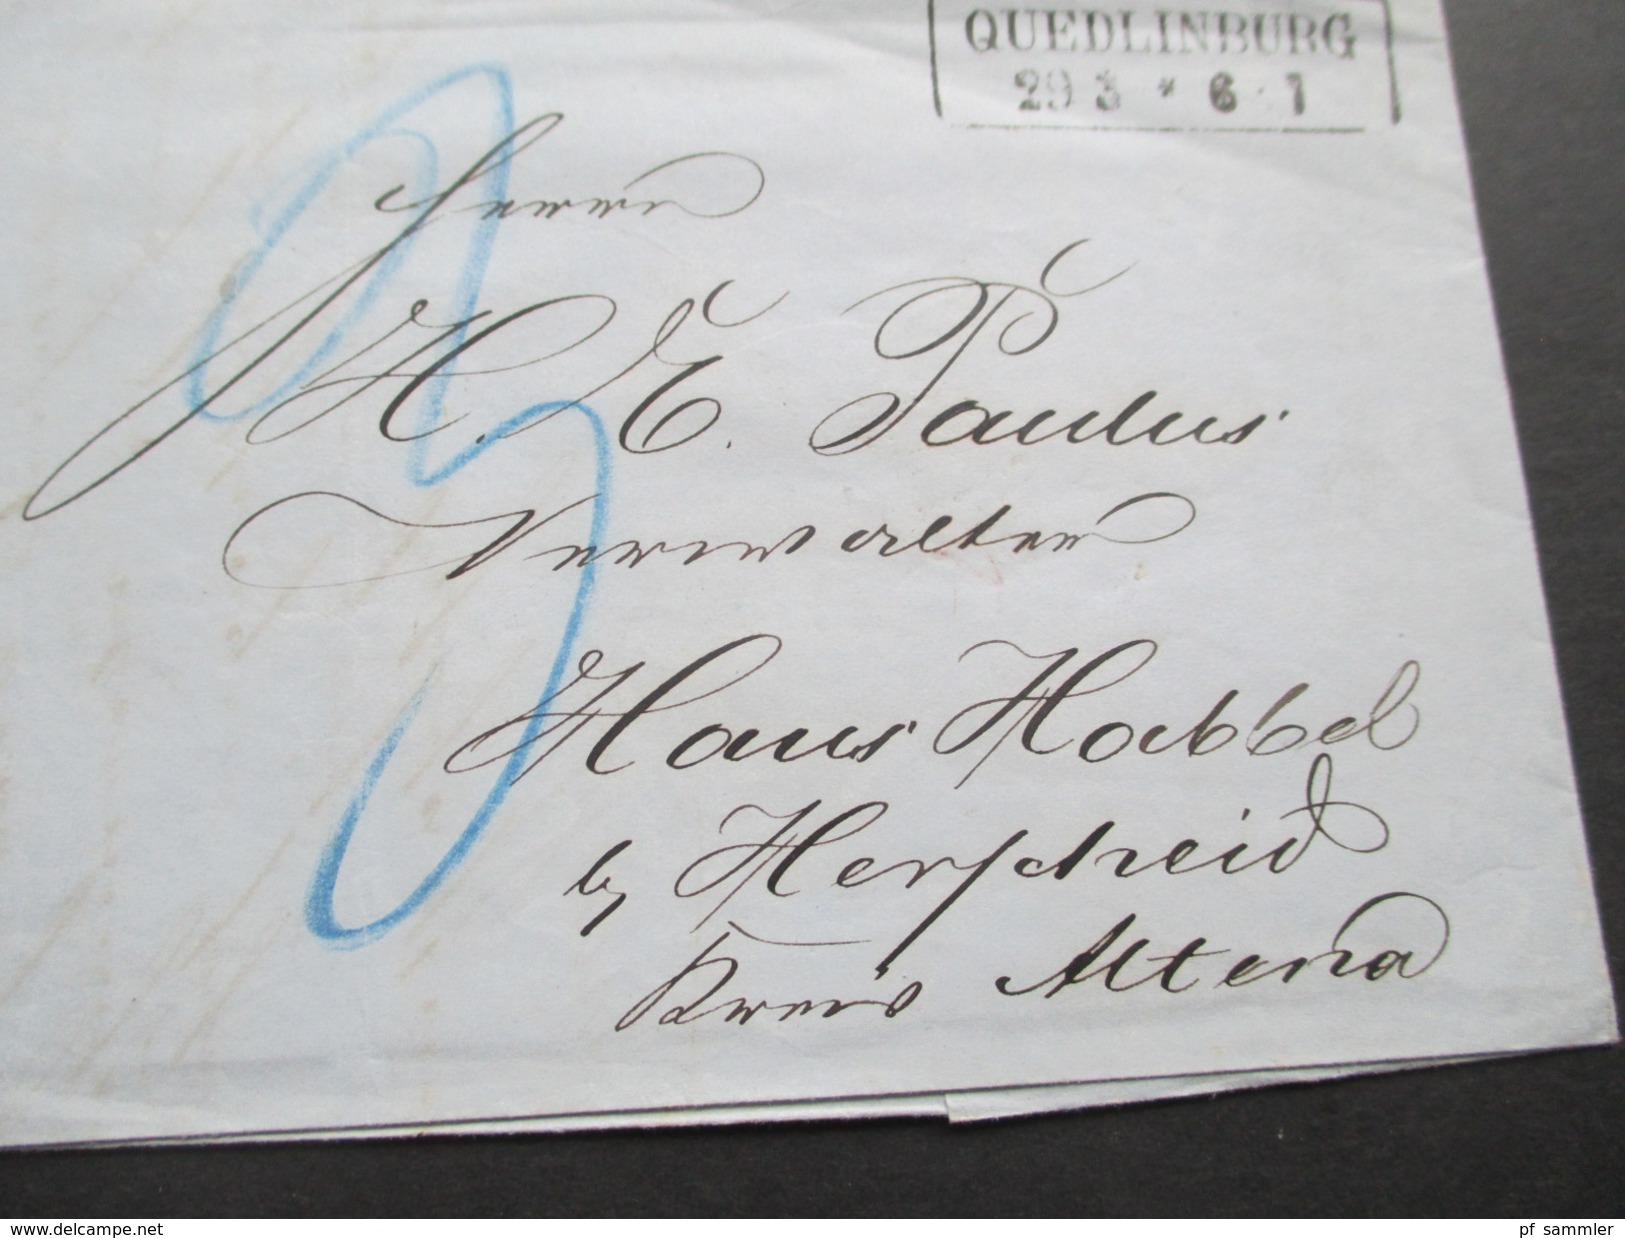 QUEDLINBURG
29 3 * 6 · 7
Herrn
H. E. Paulus
Verwalter
Haus Habbel
by Herscheid
Kreis Altena
3
delcampe.net
pf sammler